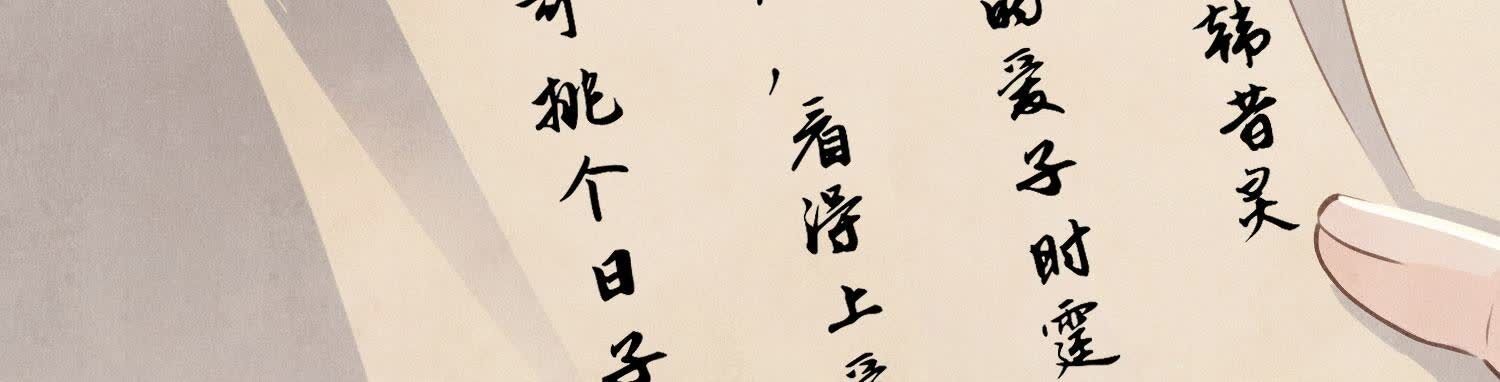 韩昔灵
的爱子时霆
，看得上
挑个日子